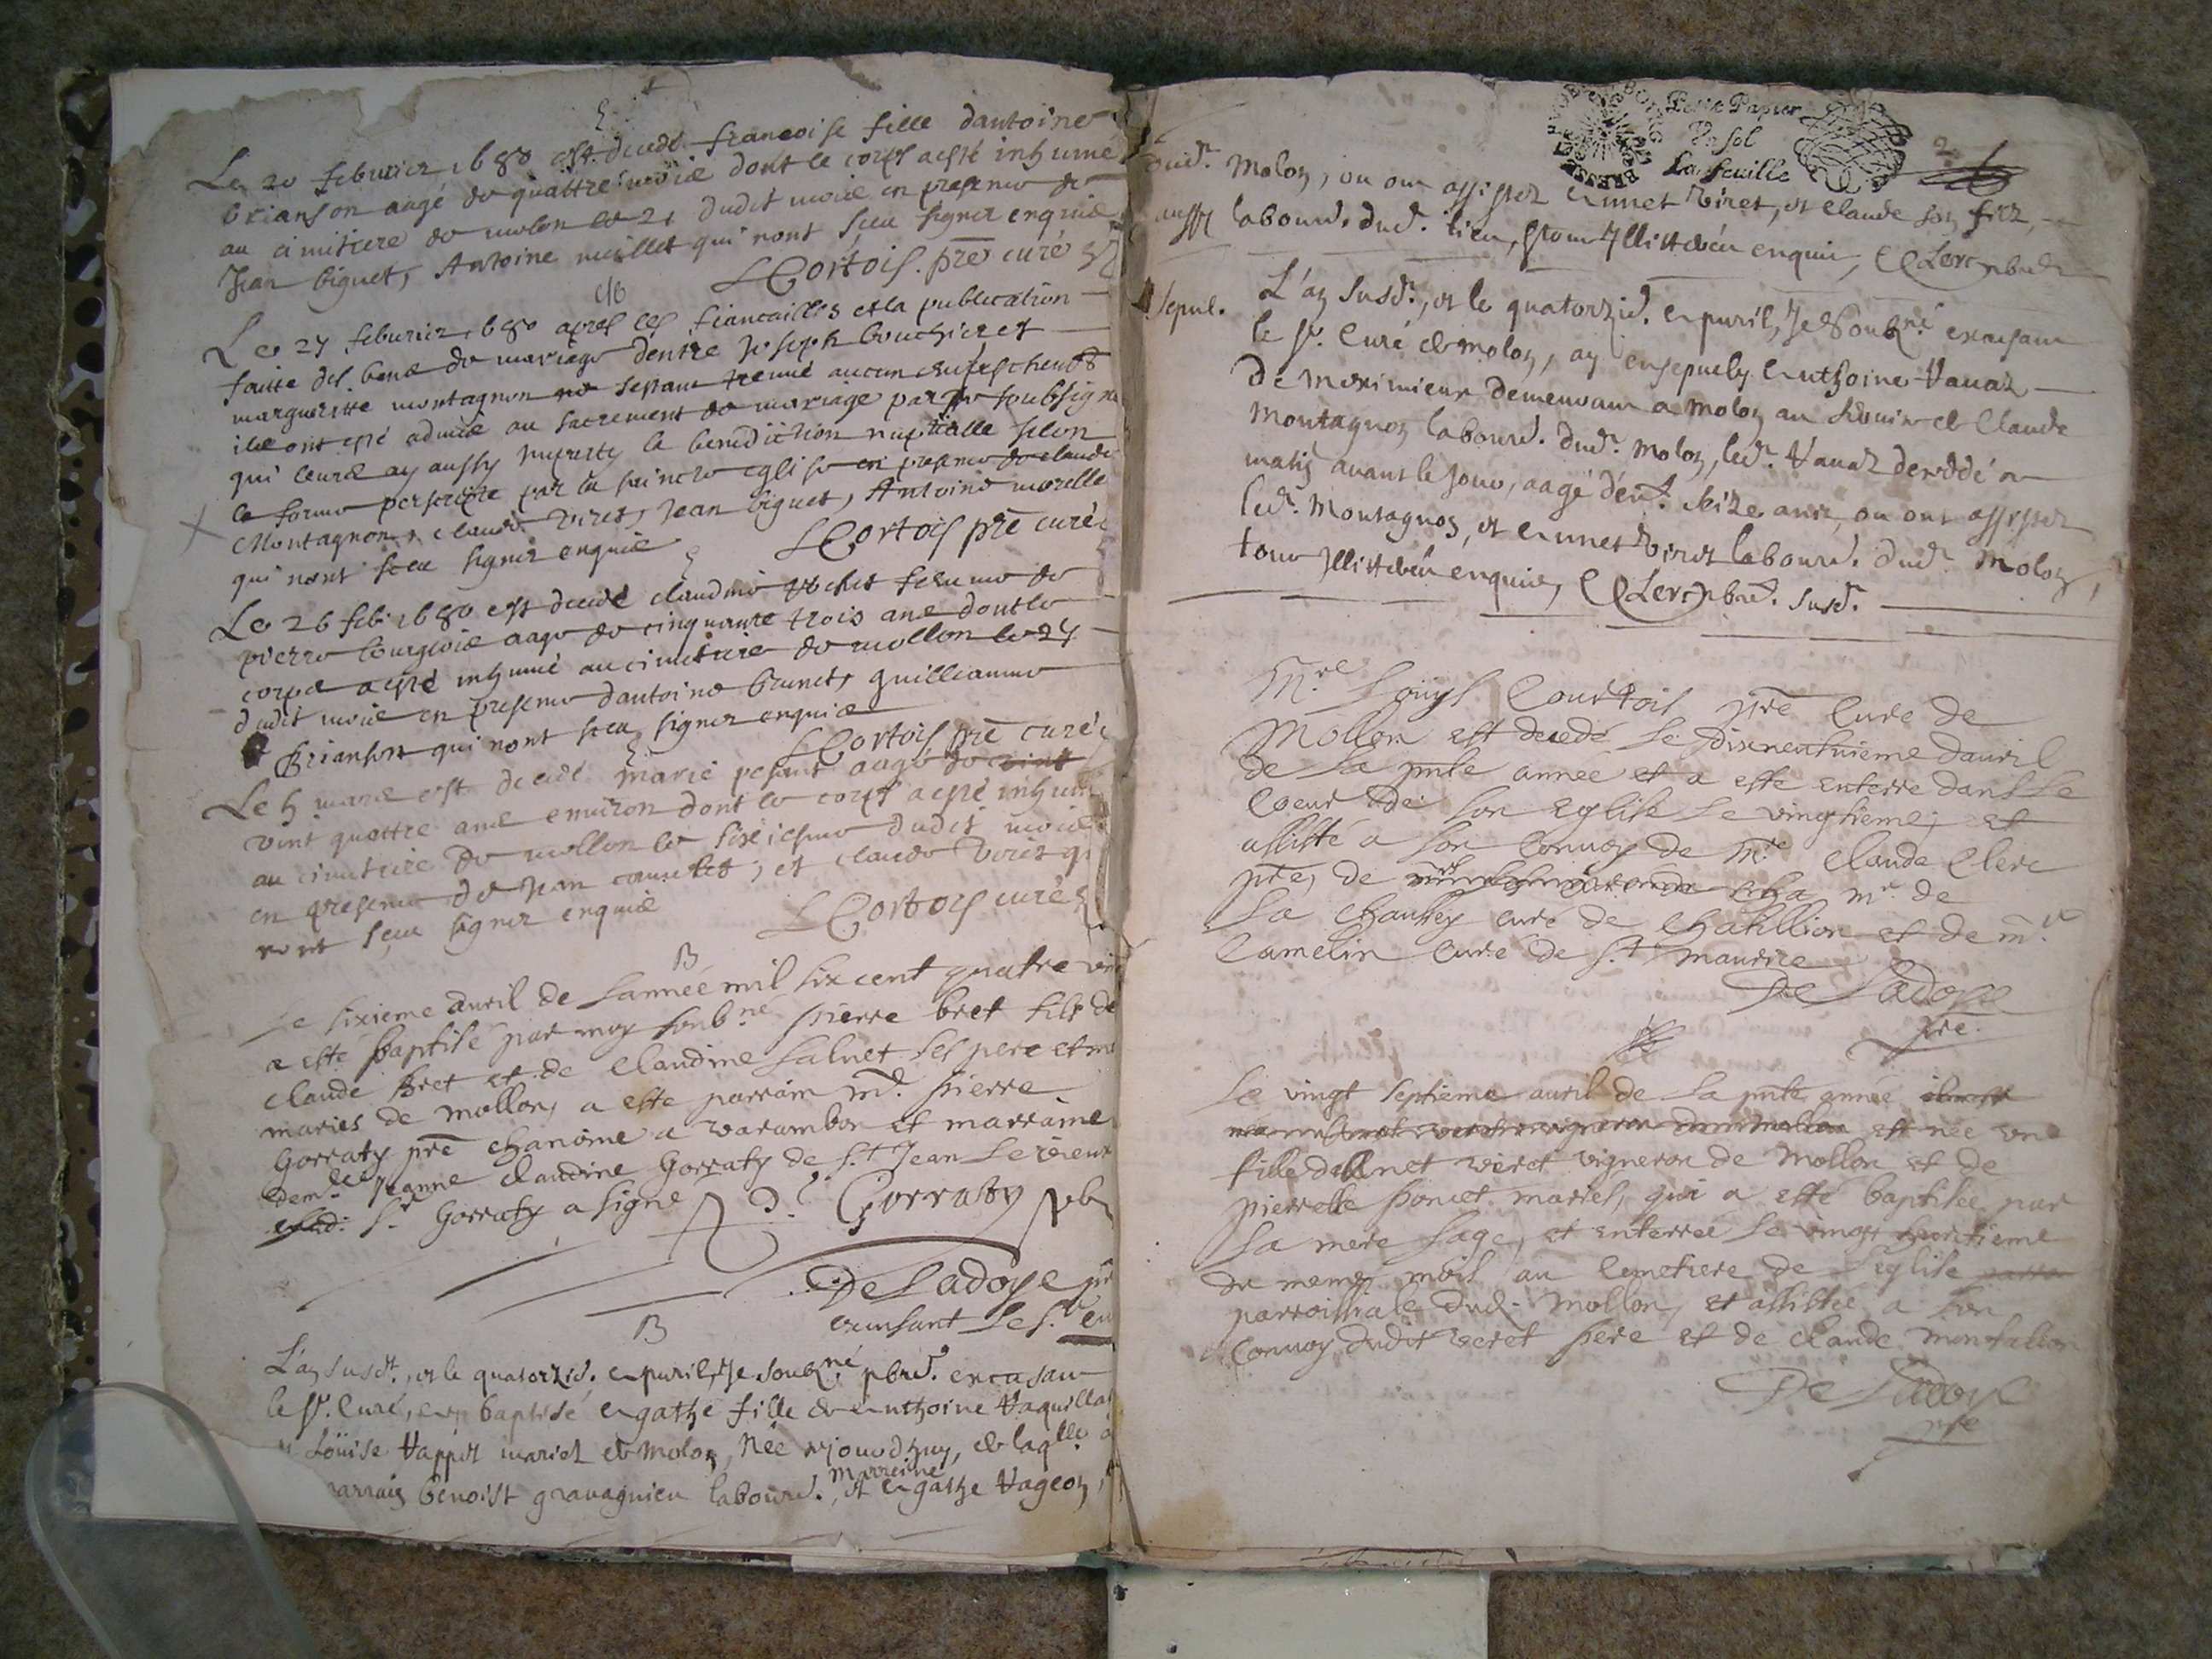 Le 20 feburier 1680 est decede francoise fille dantoine
brianson aagé de quattre mois dont le corps a esté inhumé
au cimitiere de molon le 21 dudit mois en presence de
Jean biguet, Antoine meillet qui nont sceu signer enquis
LCortois. pre curé
Le 27 feburier 1680 apres les fiancailles et la publication
faitte des bans de mariage dentre Joseph bouchier et
margueritte montagnon ne sestant treuvé aucun empeschement
ils ont esté admis au sacrement de mariage par je soubsigné
qui leurs ay aussy imparty la benediction nuptialle selon
la forme perscritte par la saincte eglise en presence de claude
Montagnon, claude viret, Jean biguet, Antoine morelle
qui nont sceu signer enquis LCortois pre curé
Le 26 feb. 1680 est decedé claudine femme de
pierre bourgeois aage de cinquante trois ans dont le
corps a esté inhumé au cimitiere de mollon le 27
dudit mois en presence dantoine brunet, guilliaume
Brianson qui nont sceu signer enquis
LCortois pre curé
Le 5 mars est decede marie pesant aagé de vint
vint quattre ans environ dont le corps a esté inhumé
au cimitiere de mollon le sixiesme dudit mois
en presence de Jean, et claude viret qui
nont sceu signer enquis LCortois curé
B
Le sixieme avril de lannée mil six cent quatre vin
a esté baptisé par moy soubné pierre bret fils de
claude Bret et de Claudine Saluet ses pere et me
maries de mollon, a esté parrain md. pierre
Gorraty pre chanoine a varambon et marraine
demlle Jeanne claudine Gorraty de St Jean le vieux
led. Sr Gorraty a signé Gorraty pbr
De Ladoye pre
causant le Sr cu
B
L'an susd., et le quatorzie. apvril, Je soubné pbre. en ca sant
le Sr. Curé, ay baptisé agathe fille de anthoine Vaquilla
et Loüise Vappit mariez de Molon, Née cejourdhuy, de laqlle a
parrain benoist gravagnieu labour., et marreine agathe Vageon,
Petit Papier
Un sol
La feuille
2
dud. Molon, ou ont assistez annet Viret, et Claude son filz,
aussy labour. dud. lieu, tous Illitterés enquis, CClerc pbre
Sepul.
L'an Susd., et le quatorzie. apvril, Je Soubné. en causant
le Sr. Curé de Molon, ay ensepvely anthoine Vavaz
De Meximieux demeurant a Molon au service de Claude
Montagnon labour. dud. Molon, led. Vavaz decedé ce
matin avant le jour, aagé d'env. seize ans, ou ont assistez
led. Montagnon, et annet Viret labour. dud. Molon,
tous Illitterés enquis, CClerc pbre. susd.
Mre Loüys Courtois pre Cure de
Mollon est decedé le dixneufuieme d'avril
de la pnte année et a esté enterre dans le
Coeur de son Eglise le vingtieme, et
assisté a son Convoy de Mre Claude Clerc
pre, de mr. de
La chaussy curé de Chatillion et de mr
Camelin Curé de St Maurice
De Ladoye
pre.
Le vingt septieme avril de la pnte année
est née une
fille dAnnet viret vigneron de Mollon et de
pierrette poncet mariés, qui a esté baptisée par
la mere sage, et enterrée le vingt huitieme
du meme mois au Cemetiere de l'eglise
parroissiale dud. Mollon, et assistée a son
Convoy dudit veret pere et de claude montallon
De Ladoye
pre